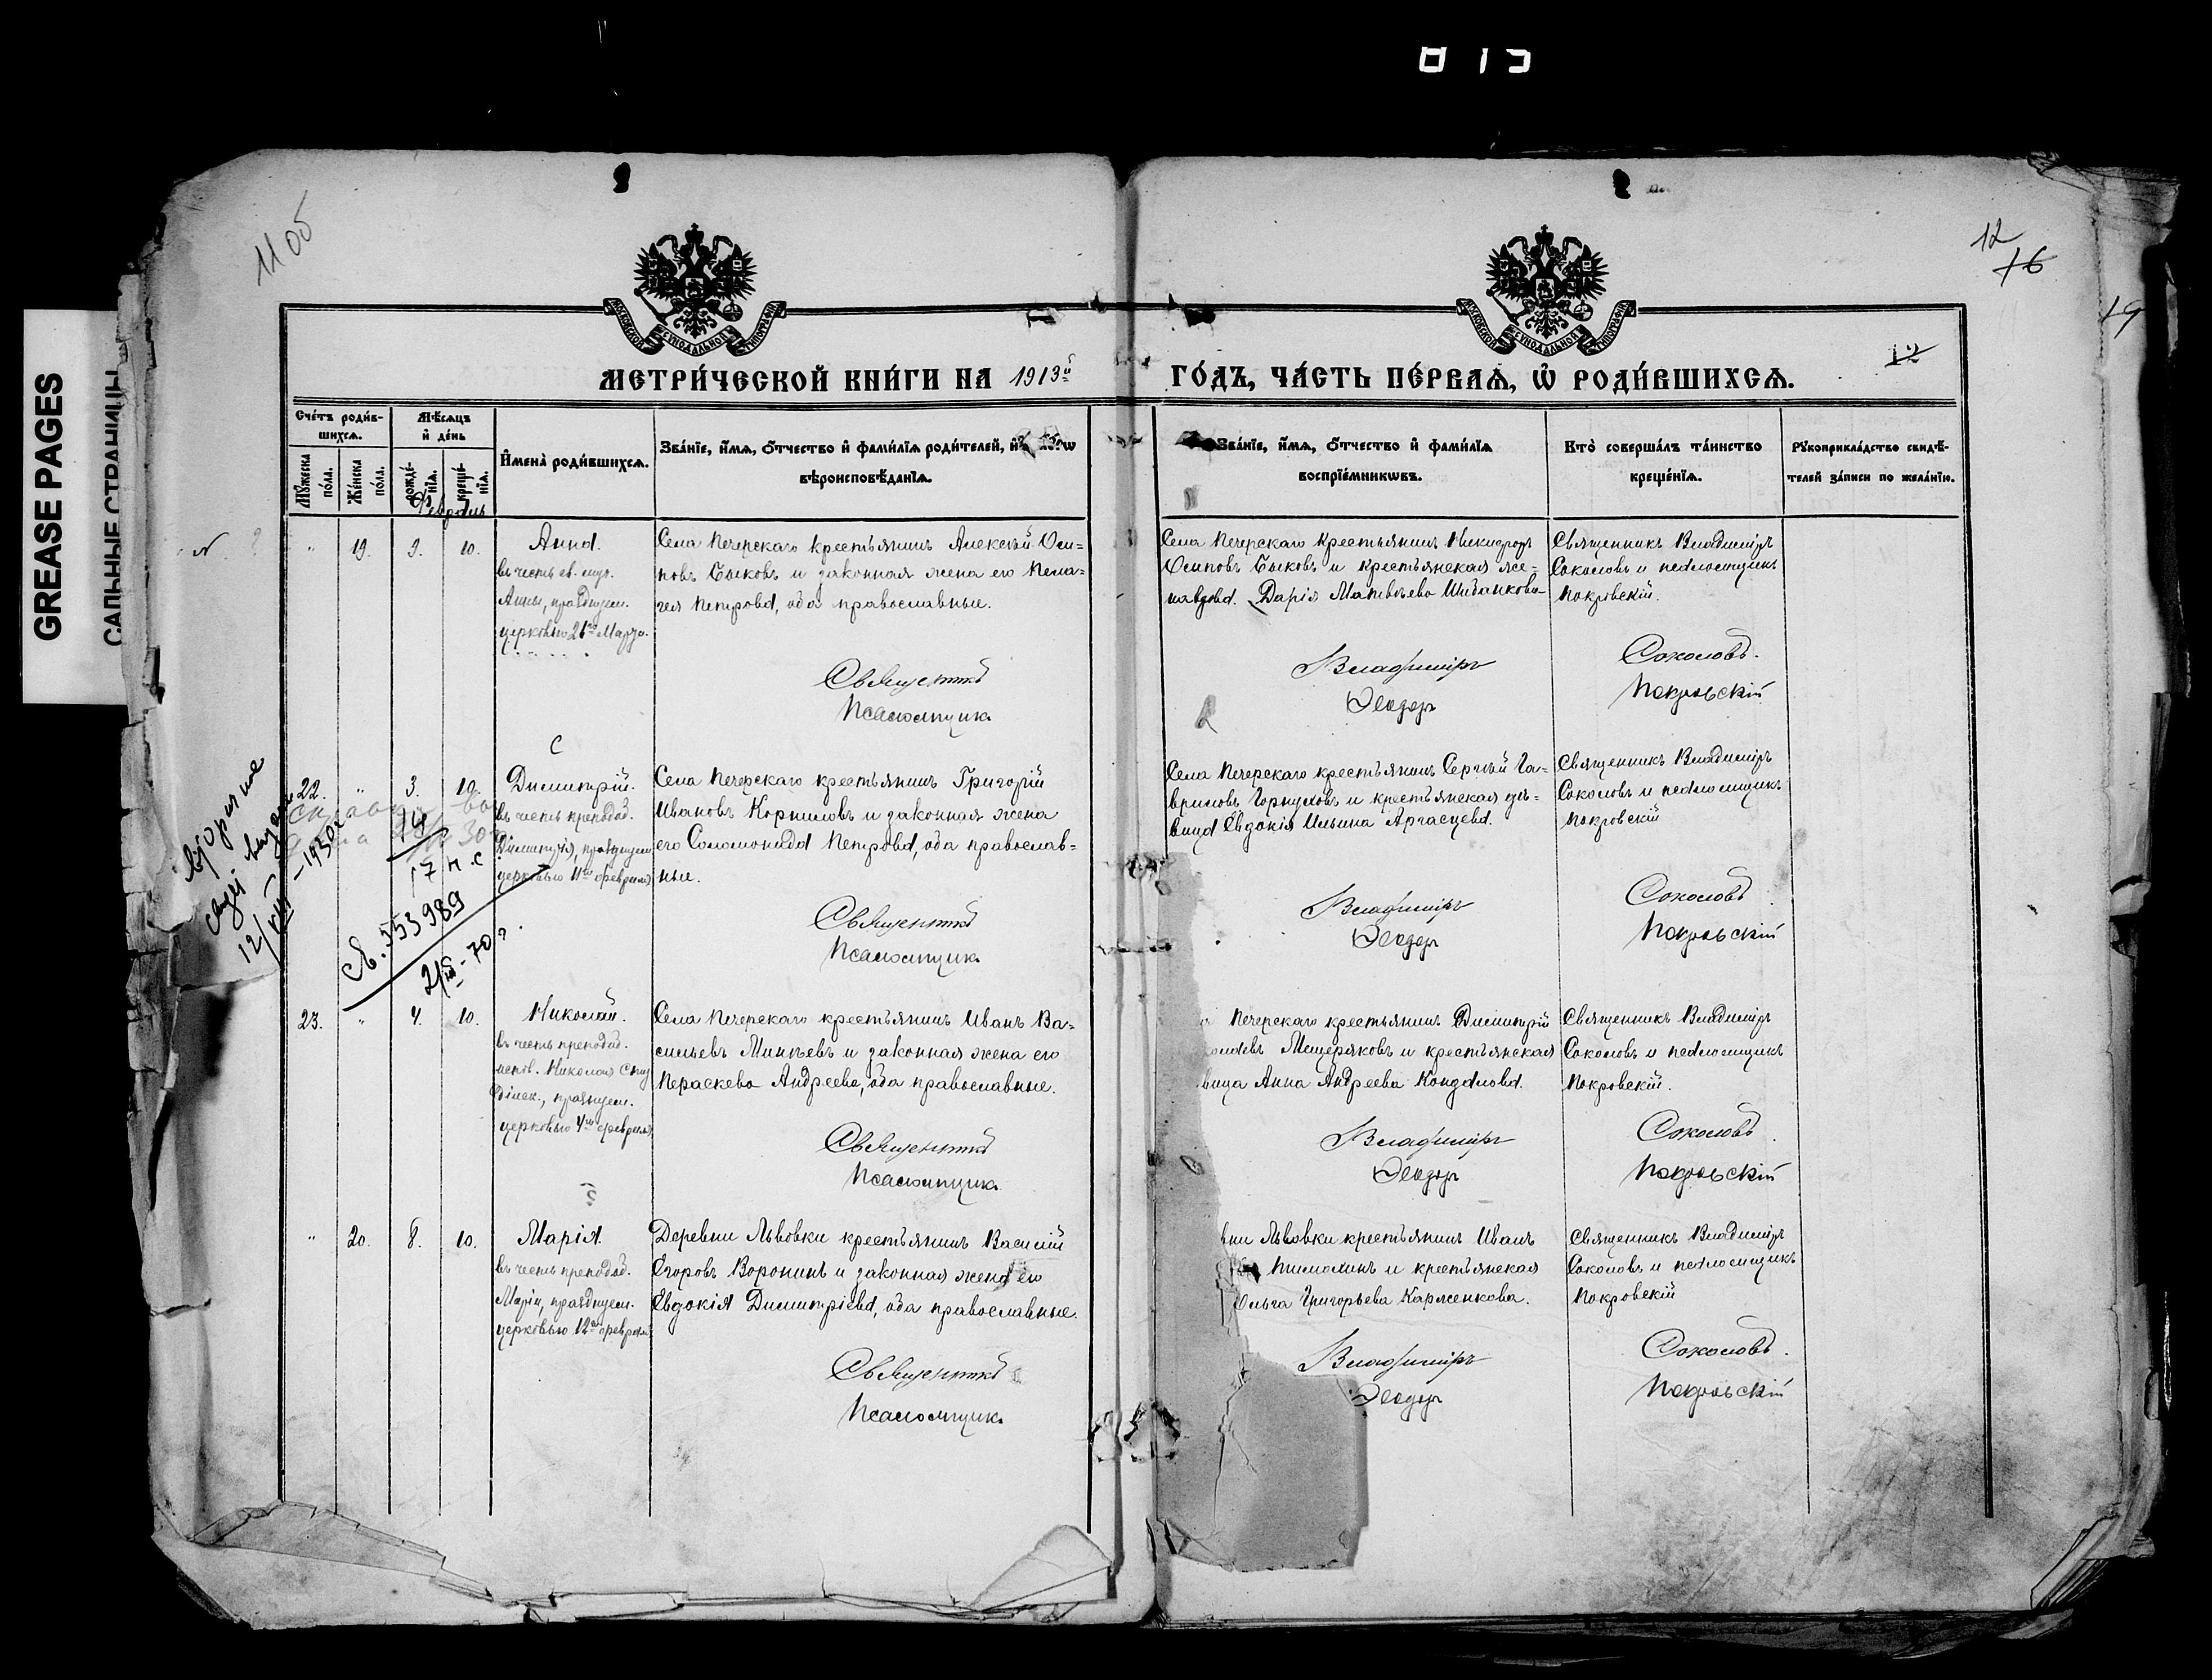 013
GREASE PAGES
САЛЬНЫЕ СТРАНИЦЫ
11 об
12
16
19
12
МОСКОВСКОЙ СѴНОДАЛЬНОЙ ТИПОГРАФІИ
МОСКОВСКОЙ СѴНОДАЛЬНОЙ ТИПОГРАФІИ
МЕТРИ́ЧЕСКОЙ КНИ́ГИ НА 1913й
ГО́ДЪ, ЧА́СТЬ ПЕ́РВАЯ, Ѡ҆ РОДИ́ВШИХСЯ.
Сче́тъ роди́в-
шихся.
Мꙋ́жеска
по́ла.
Же́нска
по́ла.
Мѣ́сяцъ
и҆ де́нь
рожде́-
нїя.
креще́-
нїя.
Февраль
И҆мена̀ роди́вшихся.
Зва́нїе, и҆́мя, ѻ҆́тчество и҆ фами́лїя роди́телей, и҆
вѣроисповѣ́данїя.
Зва́нїе, и҆́мя, ѻ҆́тчество и҆ фами́лїя
воспрїе́мникѡвъ.
Кто̀ соверша́лъ та́инство
креще́нїя.
Рꙋкоприкла́дство свидѣ́-
телей за́писи по жела́нїю.
" 19. 9. 10.
Анна.
въ честь св. муч.
Анны, празднуем.
церковью 26го Марта.
Села Печерскаго крестьянинъ Алексѣй Оси=
повъ Быковъ и законная жена его Пела=
гея Петрова, оба православные.
Священникъ
Псаломщикъ
Села Печерскаго крестьянинъ Никифоръ
Осиповъ Быковъ и крестьянская же=
на вдова Дарія Матвѣева
Владиміръ
Ѳеодоръ
Священникъ Владиміръ
Соколовъ и псаломщикъ
Покровскій.
Соколовъ.
Покровскій
22. " 3. 10.
С
Димитрій.
въ честь преподоб.
Димитрія, празднуем.
церковью 11го февраля
Села Печерскаго крестьянинъ Григорій
Ивановъ Корниловъ и законная жена
его Соломонида Петрова, оба православ=
ные.
Священникъ
Псаломщикъ
Села Печерскаго крестьянинъ Сергѣй Га=
вриловъ Горшковъ и крестьянская дѣ=
вица Евдокія Ильина
Владиміръ
Ѳеодоръ
Священникъ Владиміръ
Соколовъ и псаломщикъ
Покровскій
Соколовъ
Покровскій
вторичное
свид выдано
12/VIII -1930г
17 н.с
св. 553989
2/IX-70г.
23. " 4. 10.
Николай.
въ честь преподоб.
испов. Николая Сту
дійск., празднуем.
церковью 4го февраля
Села Печерскаго крестьянинъ Иванъ Ва=
сильевъ Минѣевъ и законная жена его
Параскева Андреева, оба православные.
Священникъ
Псаломщикъ
Печерскаго крестьянинъ Димитрій
Мещеряковъ и крестьянская
вица Анна Андреева Кондалова.
Владиміръ
Ѳеодоръ
Священникъ Владиміръ
Соколовъ и псаломщикъ
Покровскій.
Соколовъ
Покровскій
" 20. 8. 10.
Марія.
въ честь преподоб.
Маріи, празднуем.
церковью 12го февраля
Деревни Львовки крестьянинъ Василій
Егоровъ Воронинъ и законная жена его
Евдокія Димитріева, оба православные.
Священникъ
Псаломщикъ
вни Львовки крестьянинъ Иванъ
Тимохинъ и крестьянская
Ольга Григорьева Карженкова.
Владиміръ
Ѳеодоръ
Священникъ Владиміръ
Соколовъ и псаломщикъ
Покровскій
Соколовъ.
Покровскій